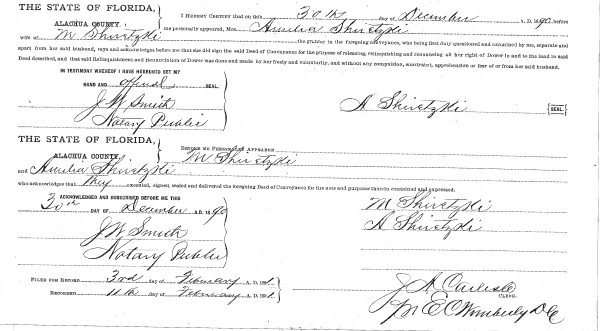 THE STATE OF FLORIDA,
ALACHUA COUNTY.
I HEREBY CERTIFY that on this 30th day of December A. D. 1890, before
me personally appeared, Mrs. Amelia Shirtzki
wife of M Shirtzki the grantor in the foregoing conveyance, who being first duly questioned and examined by me, separate and
apart from her said husband, says and acknowledges before me that she did sign the said Deed of Conveyance for the purpose of releasing, relinquishing and renouncing all her right of Dower in and to the land in said
Deed described, and that said Relinquishment and Renunciation of Dower was done and made by her freely and voluntarily, and without any compulsion, constraint, apprehension or fear of or from her said husband.
IN TESTIMONY WHEREOF I HAVE HEREUNTO SET MY
HAND AND official SEAL.
J W Smith
Notary Public
A Shirtzki {SEAL.}
THE STATE OF FLORIDA,
ALACHUA COUNTY,
BEFORE ME PERSONALLY APPEARED M Shirtzki
and Amelia Shirtzki
who acknowledges that they executed, signed, sealed and delivered the foregoing Deed of Conveyance for the uses and purposes therein contained and expressed.
ACKNOWLEDGED AND SUBSCRIBED BEFORE ME THIS
30th DAY OF December A.D. 1890
J W Smith
Notary Public
M Shirtzki
A Shirtzki
FILED FOR RECORD 3rd day of February A. D. 1891
RECORDED 11th day of February A. D. 1891
J A Carlisle
CLERK.
pr E C Wimberly D C